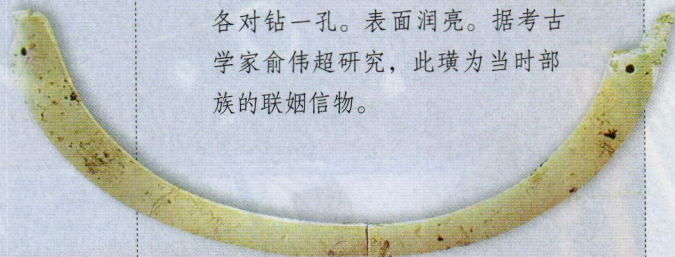 各对钻一孔。表面润亮。据考古
学家俞伟超研究，此璜为当时部
族的联姻信物。